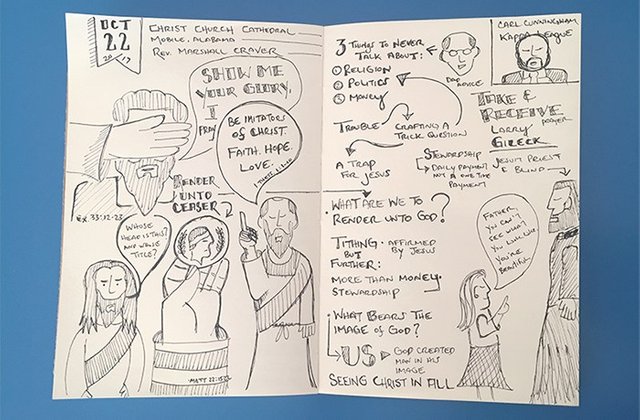 OCT
22
2017
CHRIST CHURCH CATHEDRAL
MOBILE, ALABAMA
REV. MARSHALL CRAVER
SHOW ME
YOUR GLORY,
I
PRAY
BE IMITATORS
OF CHRIST.
FAITH. HOPE.
LOVE.
RENDER
UNTO
CEASER
EX. 33:12-23
WHOSE
HEAD IS THIS?
AND WHOSE
TITLE?
MATT 22:15-22
3 THINGS TO NEVER
TALK ABOUT:
① RELIGION
② POLITICS
③ MONEY
DAD
ADVICE
CARL CUNNINGHAM
KAPPA LEAGUE
TROUBLE
CRAFTING A
TRICK QUESTION
A TRAP
FOR JESUS
TAKE &
RECEIVE
PRAYER
LARRY
GILLICK
JESUIT PRIEST
& BLIND
STEWARDSHIP
DAILY PAYMENT
NOT A ONE TIME
PAYMENT
WHAT ARE WE TO
RENDER UNTO GOD?
TITHING: AFFIRMED
BY JESUS
BUT
FURTHER:
MORE THAN MONEY.
STEWARDSHIP
WHAT BEARS THE
IMAGE OF GOD?
US
GOD CREATED
MAN IN HIS
IMAGE
SEEING CHRIST IN ALL
FATHER,
YOU CAN'T
SEE WHAT
YOU LOOK LIKE
YOU'RE
BEAUTIFUL